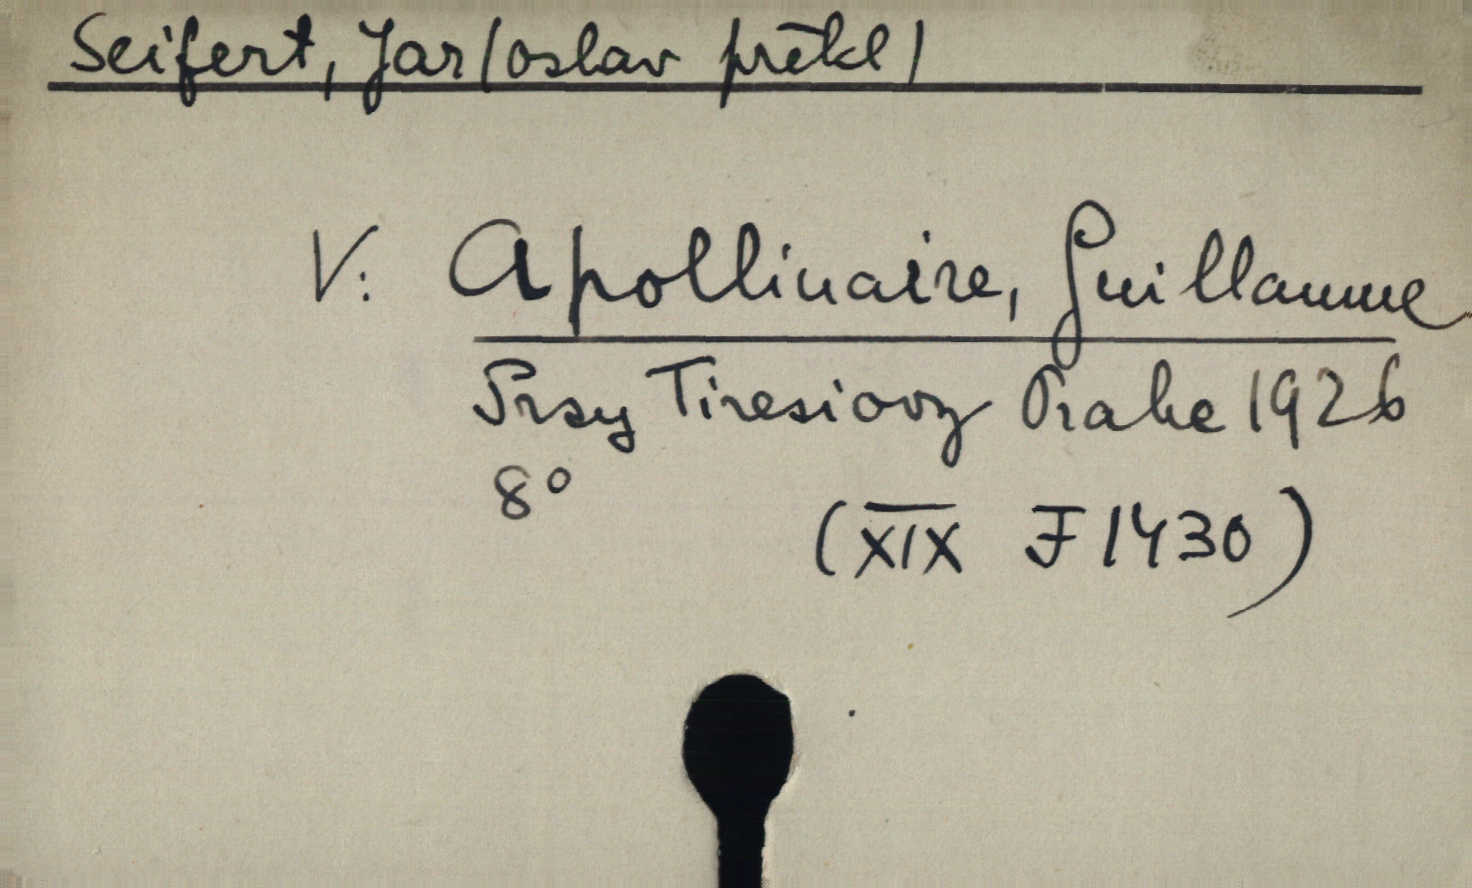 Seifert, Jar(oslav překl)
V: Apollinaire, Guillaume
Prsy Tiresiovy Praha 1926
8°
(XIX F 1430)